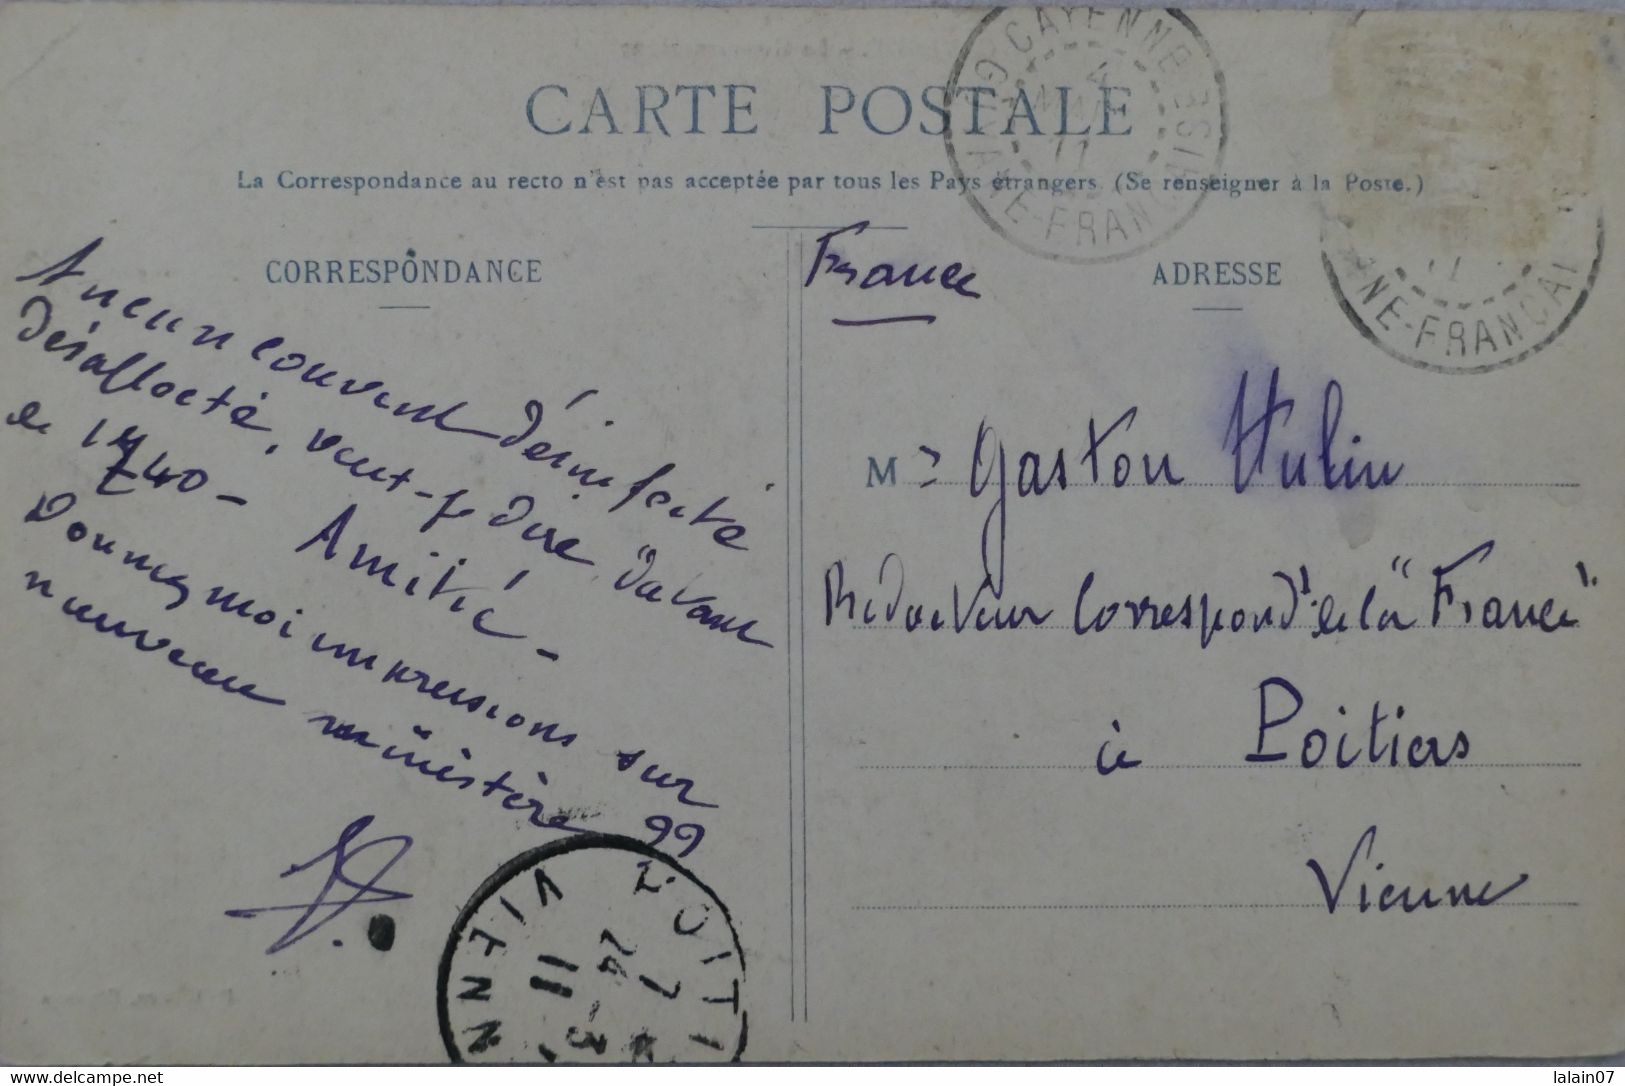 CARTE POSTALE
La Correspondance au recto n'est pas acceptée par tous les Pays étrangers. (Se renseigner à la Poste.)
CORRESPONDANCE
Ancien couvent désinfecté
désaffecté, veut-je dire, datant
de 1740 - Amitié -
Donnez moi impressions sur
nouveau ministère
ADRESSE
France
M r Gaston Hulin
Rédacteur Correspond't de la "France"
à Poitiers
Vienne
CAYENNE
GUYANE-FRANÇAISE
11
ANE-FRANÇAI
11
POITI
VIENN
7
24 -3
11
lalain07